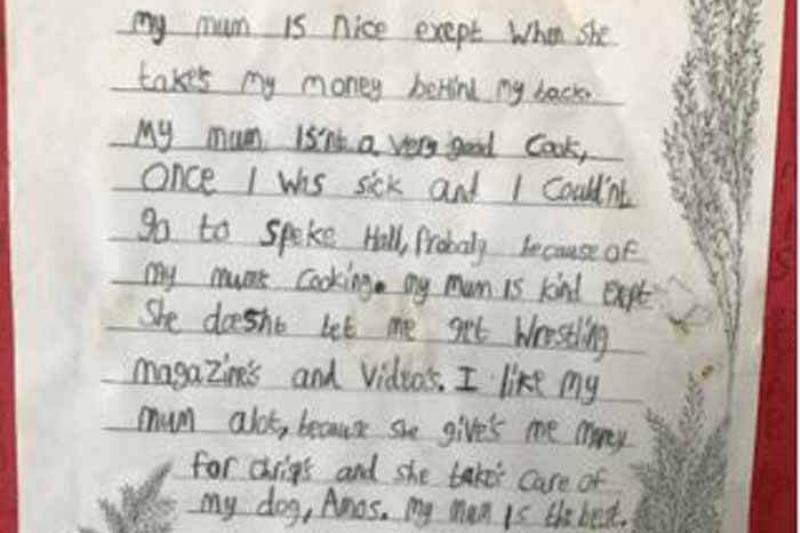 my mum is nice exept when she
take's my money behind my back.
my mum is'nt a very good cook,
once I was sick and I could'nt
go to Speke Hall, Probaly because of
my mums cooking. my mum is kind exept
She doesnt let me get Wrestling
magazine's and Video's. I like my
mum alot, because she give's me money
for chrip's and she take's care of
my dog, Amos. my mum is the best.